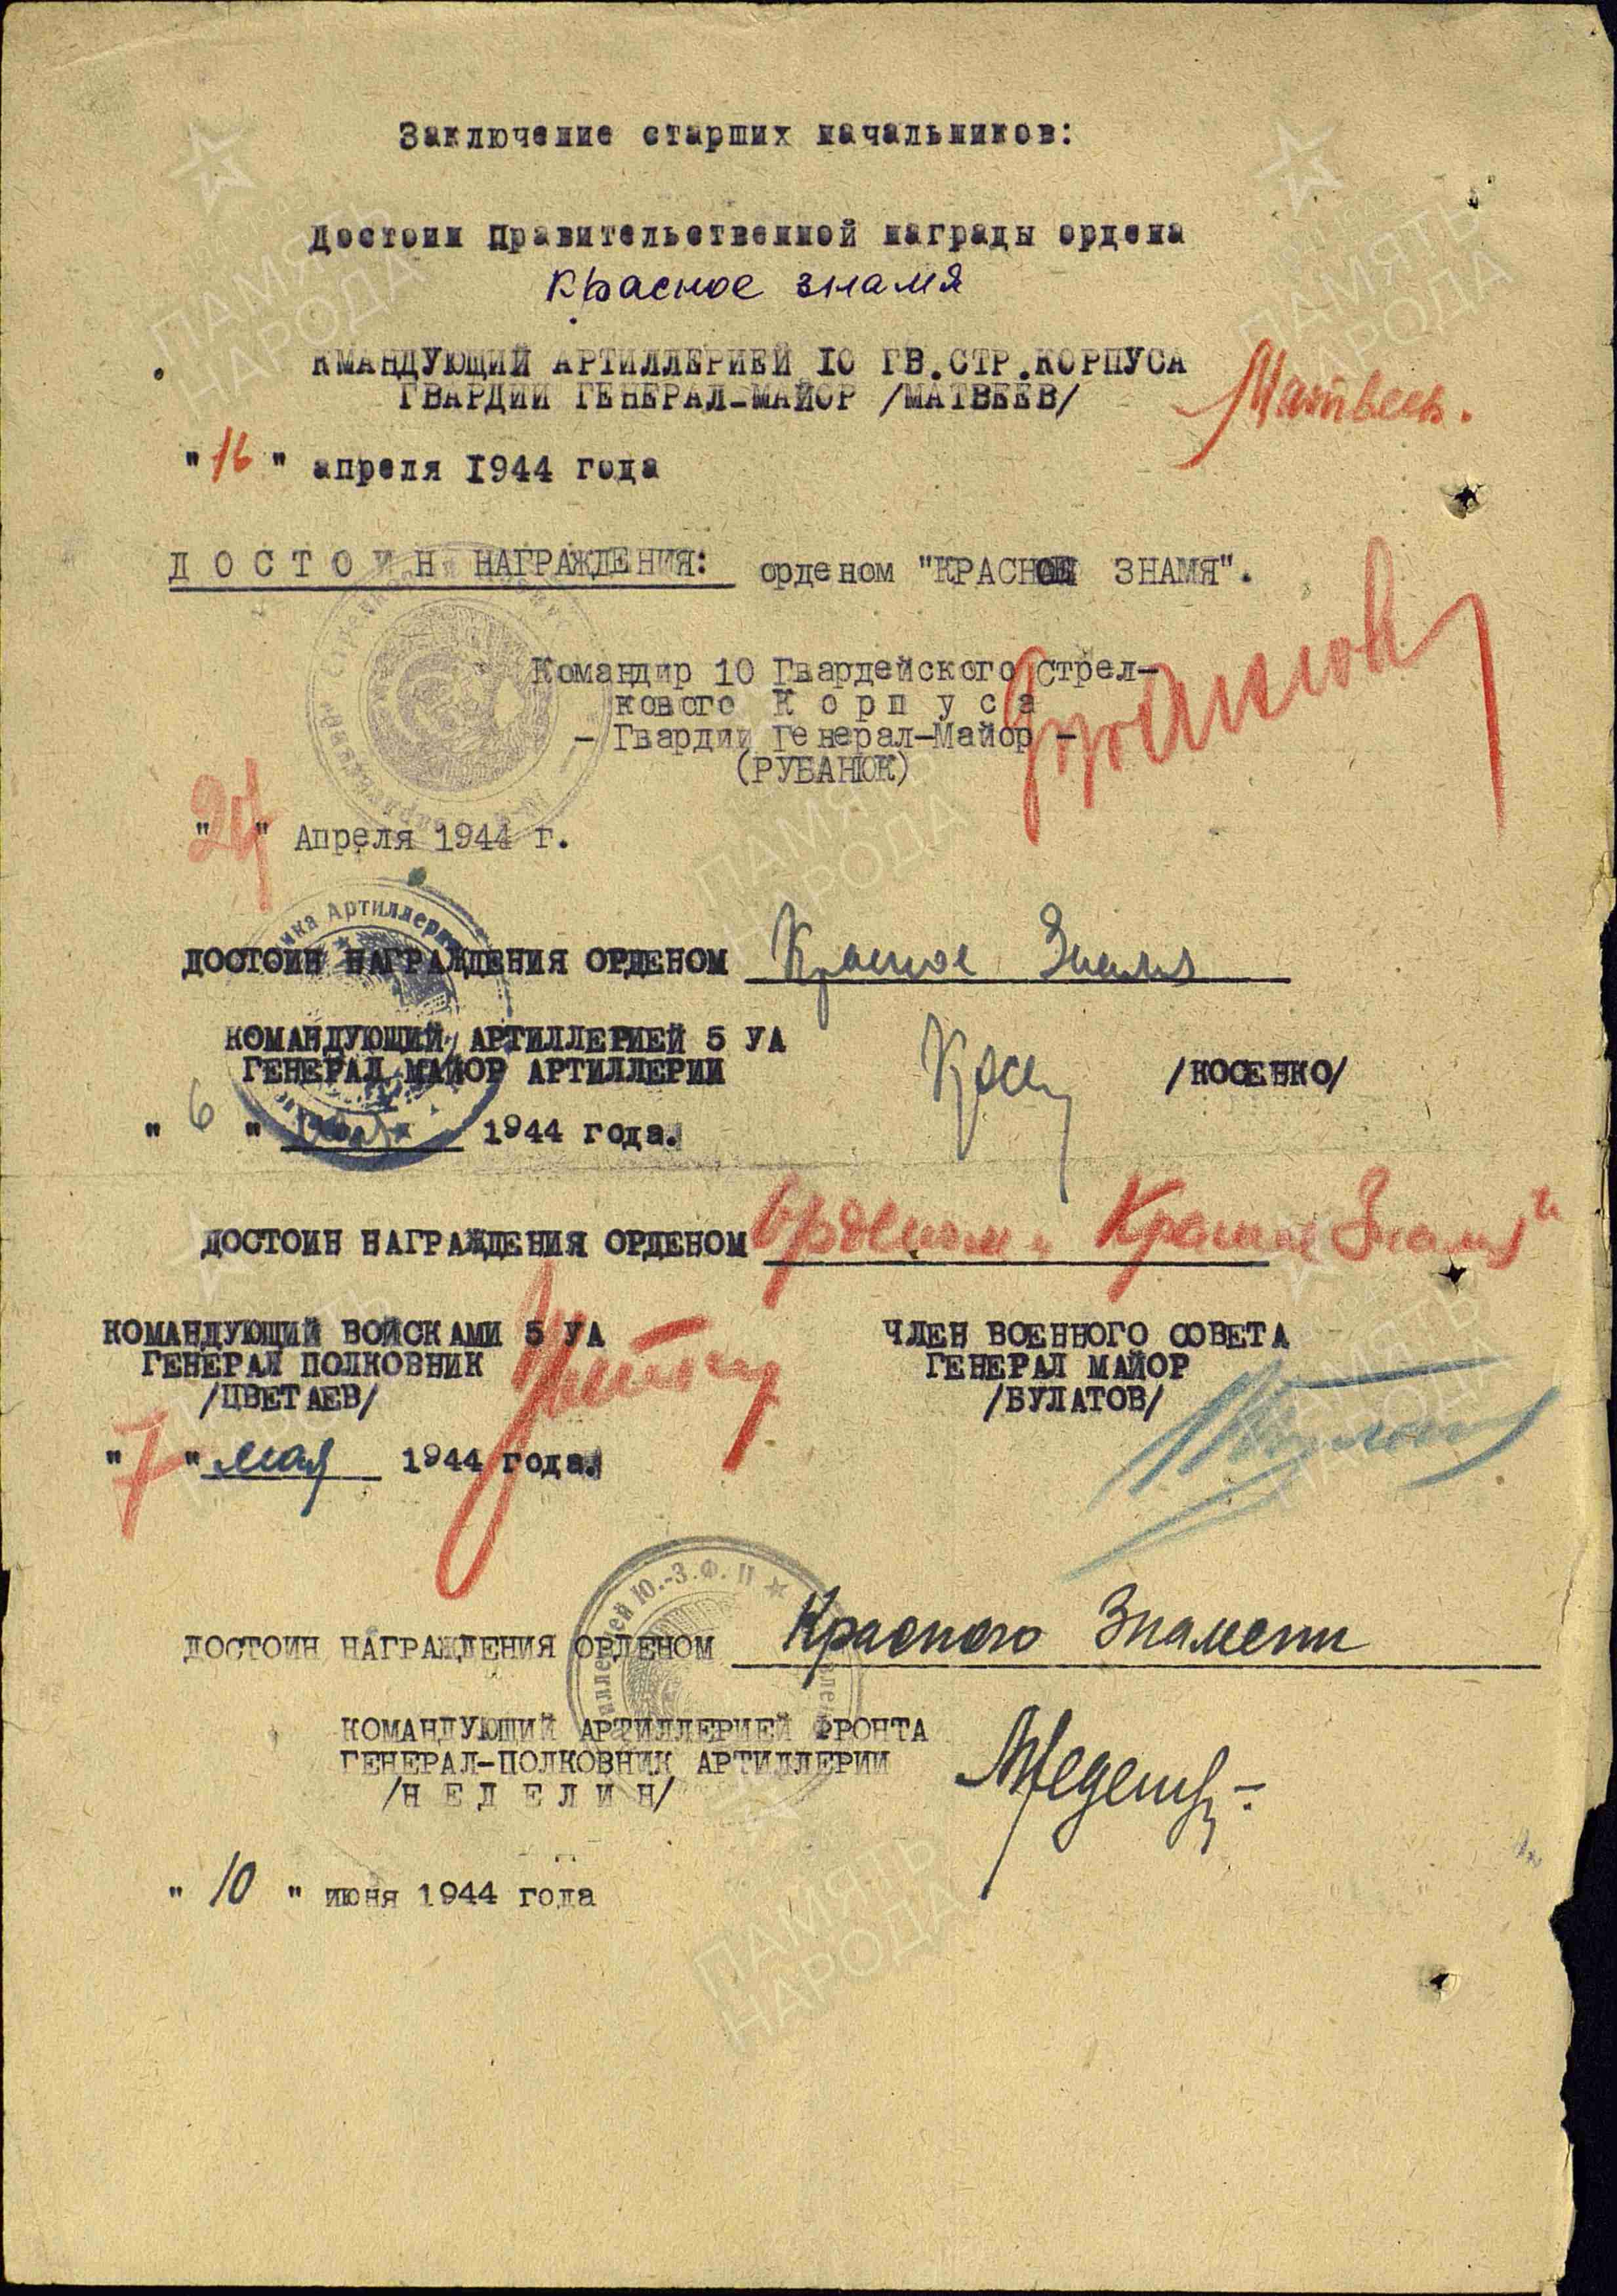 Заключение старших начальников:
Достоин Правительственной награды ордена
Красное знамя
КМАНДУЮЩИЙ АРТИЛЛЕРИЕЙ 10 ГВ.СТР.КОРПУСА
ГВАРДИИ ГЕНЕРАЛ-МАЙОР /МАТВЕЕВ/
Матвеев.
"16" апреля 1944 года
ДОСТОИН НАГРАЖДЕНИЯ: орденом "КРАСНОЕ ЗНАМЯ".
Командир 10 Гвардейского Стрел-
кового Корпуса
- Гвардии Генерал-Майор -
(РУБАНЮК)
" " Апреля 1944 г.
ДОСТОИН НАГРАЖДЕНИЯ ОРДЕНОМ Красное Знамя
КОМАНДУЮЩИЙ АРТИЛЛЕРИЕЙ 5 УА
ГЕНЕРАЛ МАЙОР АРТИЛЛЕРИИ /КОСЕНКО/
"6" мая 1944 года.
ДОСТОИН НАГРАЖДЕНИЯ ОРДЕНОМ орденом "Красное Знамя"
КОМАНДУЮЩИЙ ВОЙСКАМИ 5 УА
ГЕНЕРАЛ ПОЛКОВНИК
/ЦВЕТАЕВ/
ЧЛЕН ВОЕННОГО СОВЕТА
ГЕНЕРАЛ МАЙОР
/БУЛАТОВ/
"7" мая 1944 года.
Ю.-З.Ф.
ДОСТОИН НАГРАЖДЕНИЯ ОРДЕНОМ Красного Знамени
КОМАНДУЮЩИЙ АРТИЛЛЕРИЕЙ ФРОНТА
ГЕНЕРАЛ-ПОЛКОВНИК АРТИЛЛЕРИИ
/НЕДЕЛИН/
"10" июня 1944 года
ПАМЯТЬ
НАРОДА